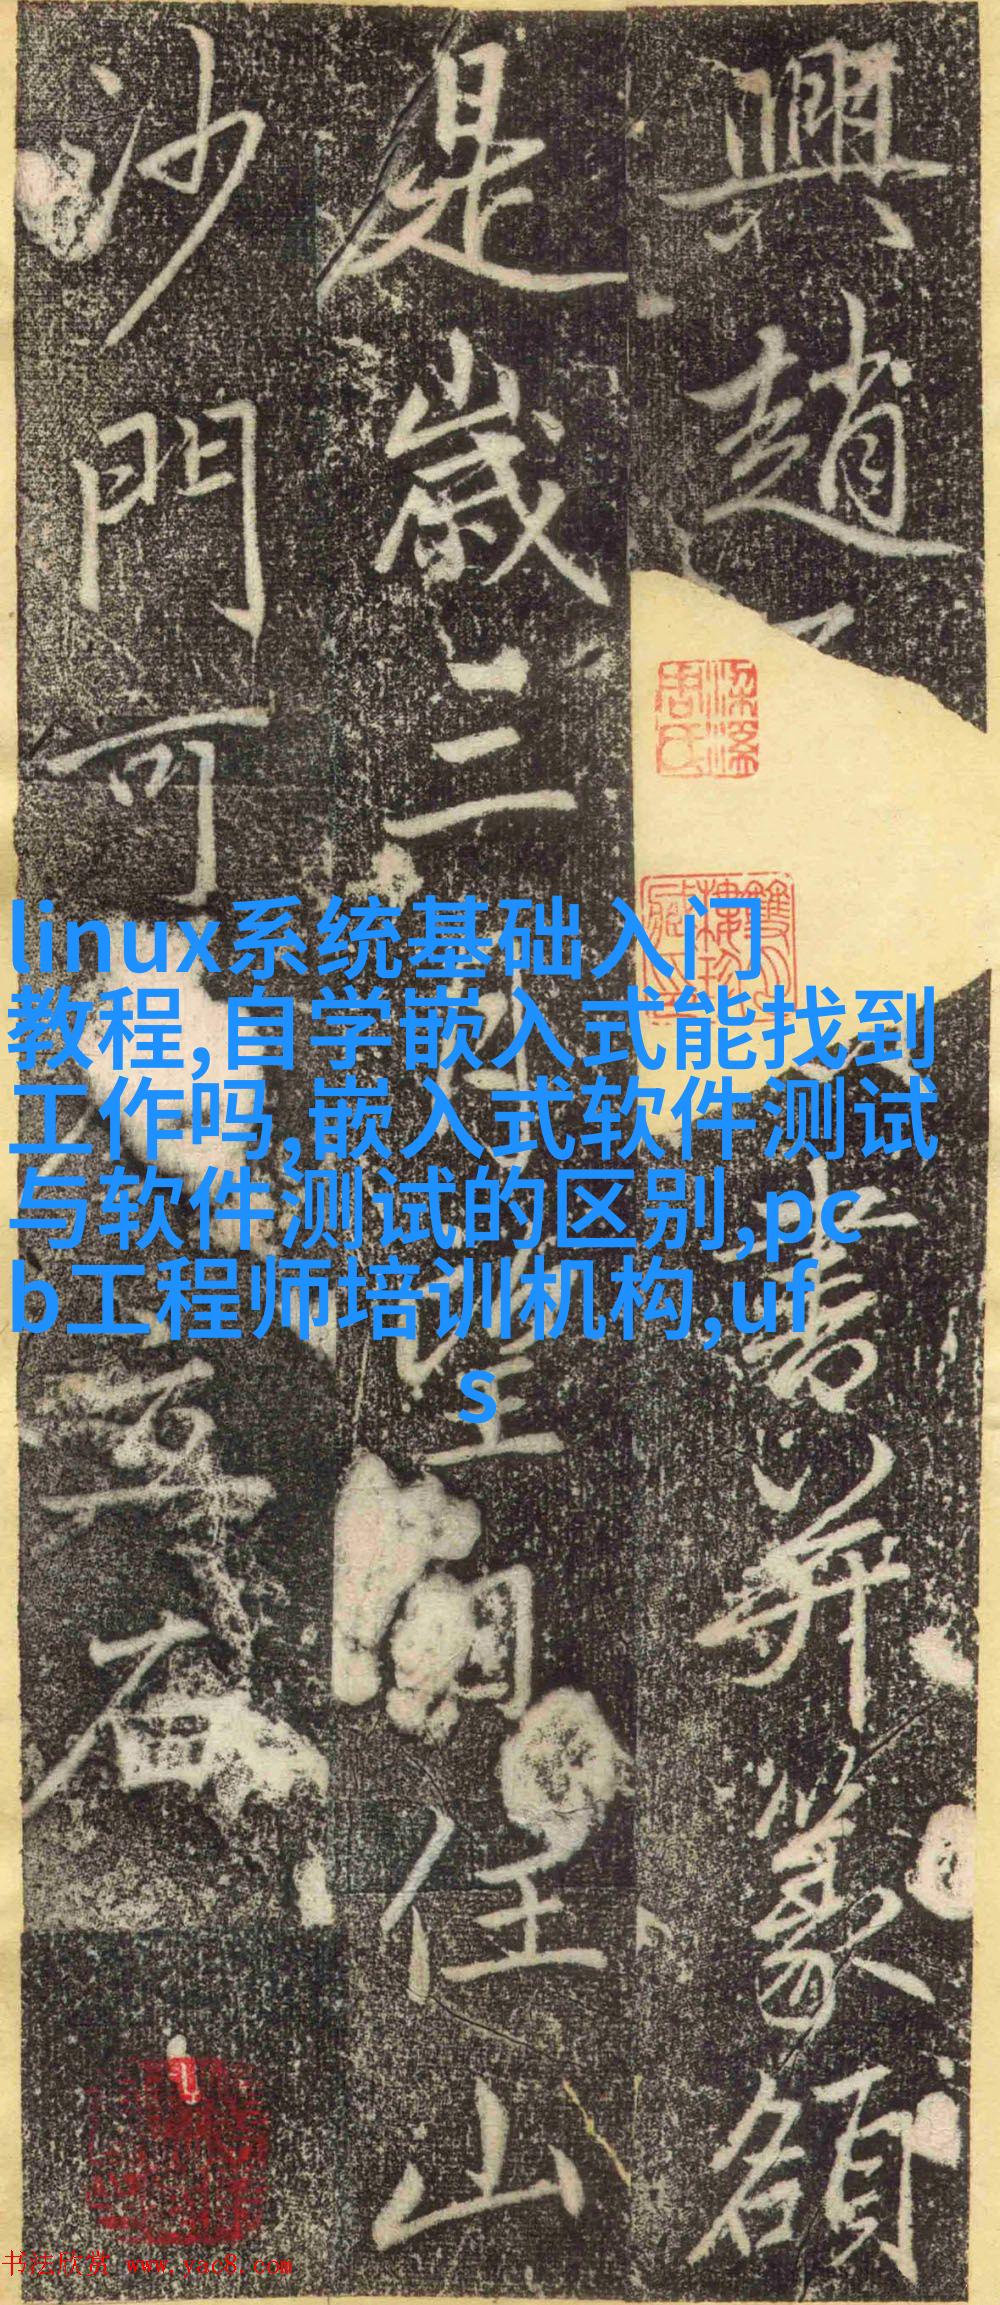 興趙書并篆額
是歲三月住山
沙門可
梁溪周氏
linux系统基础入门
教程,自学嵌入式能找到
工作吗,嵌入式软件测试
与软件测试的区别,pc
b工程师培训机构,uf
s
书法欣赏 www.yac8.com